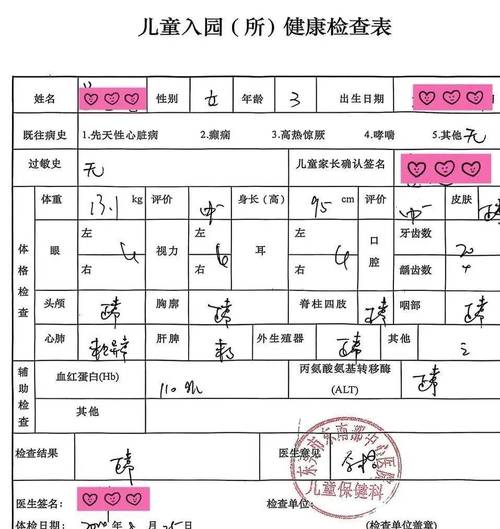 儿童入园（所）健康检查表
姓名 性别 女 年龄 3 出生日期
既往病史 1.先天性心脏病 2.癫痫 3.高热惊厥 4.哮喘 5.其他 无
过敏史 无 儿童家长确认签名
体格检查
体重 13.1 kg 评价 中 身长（高） 95 cm 评价 中 皮肤
眼 左 右 视力 左 右 耳 左 右 口腔 牙齿数 20
龋齿数
头颅 正常 胸廓 正常 脊柱四肢 正常 咽部 正常
心肺 肝脾 外生殖器 正常 其他
辅助检查
血红蛋白(Hb) 110 丙氨酸氨基转移酶(ALT) 正常
其他
检查结果 正常 医生意见
儿童保健科
医生签名： 检查单位：
体检日期： 年 8 月 日 检查单位盖章